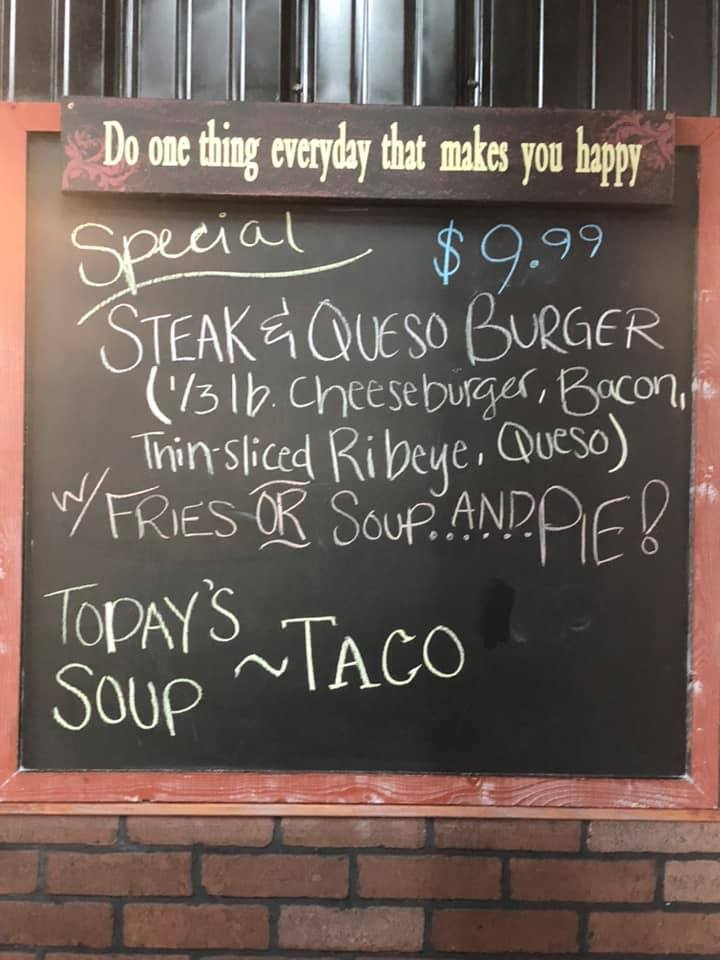 Do one thing everyday that makes you happy
Special $9.99
STEAK & QUESO BURGER
(1/3 lb. Cheeseburger, Bacon,
Thin-sliced Ribeye, Queso)
W/ FRIES OR SOUP......AND PIE!
TODAY'S
SOUP ~TACO